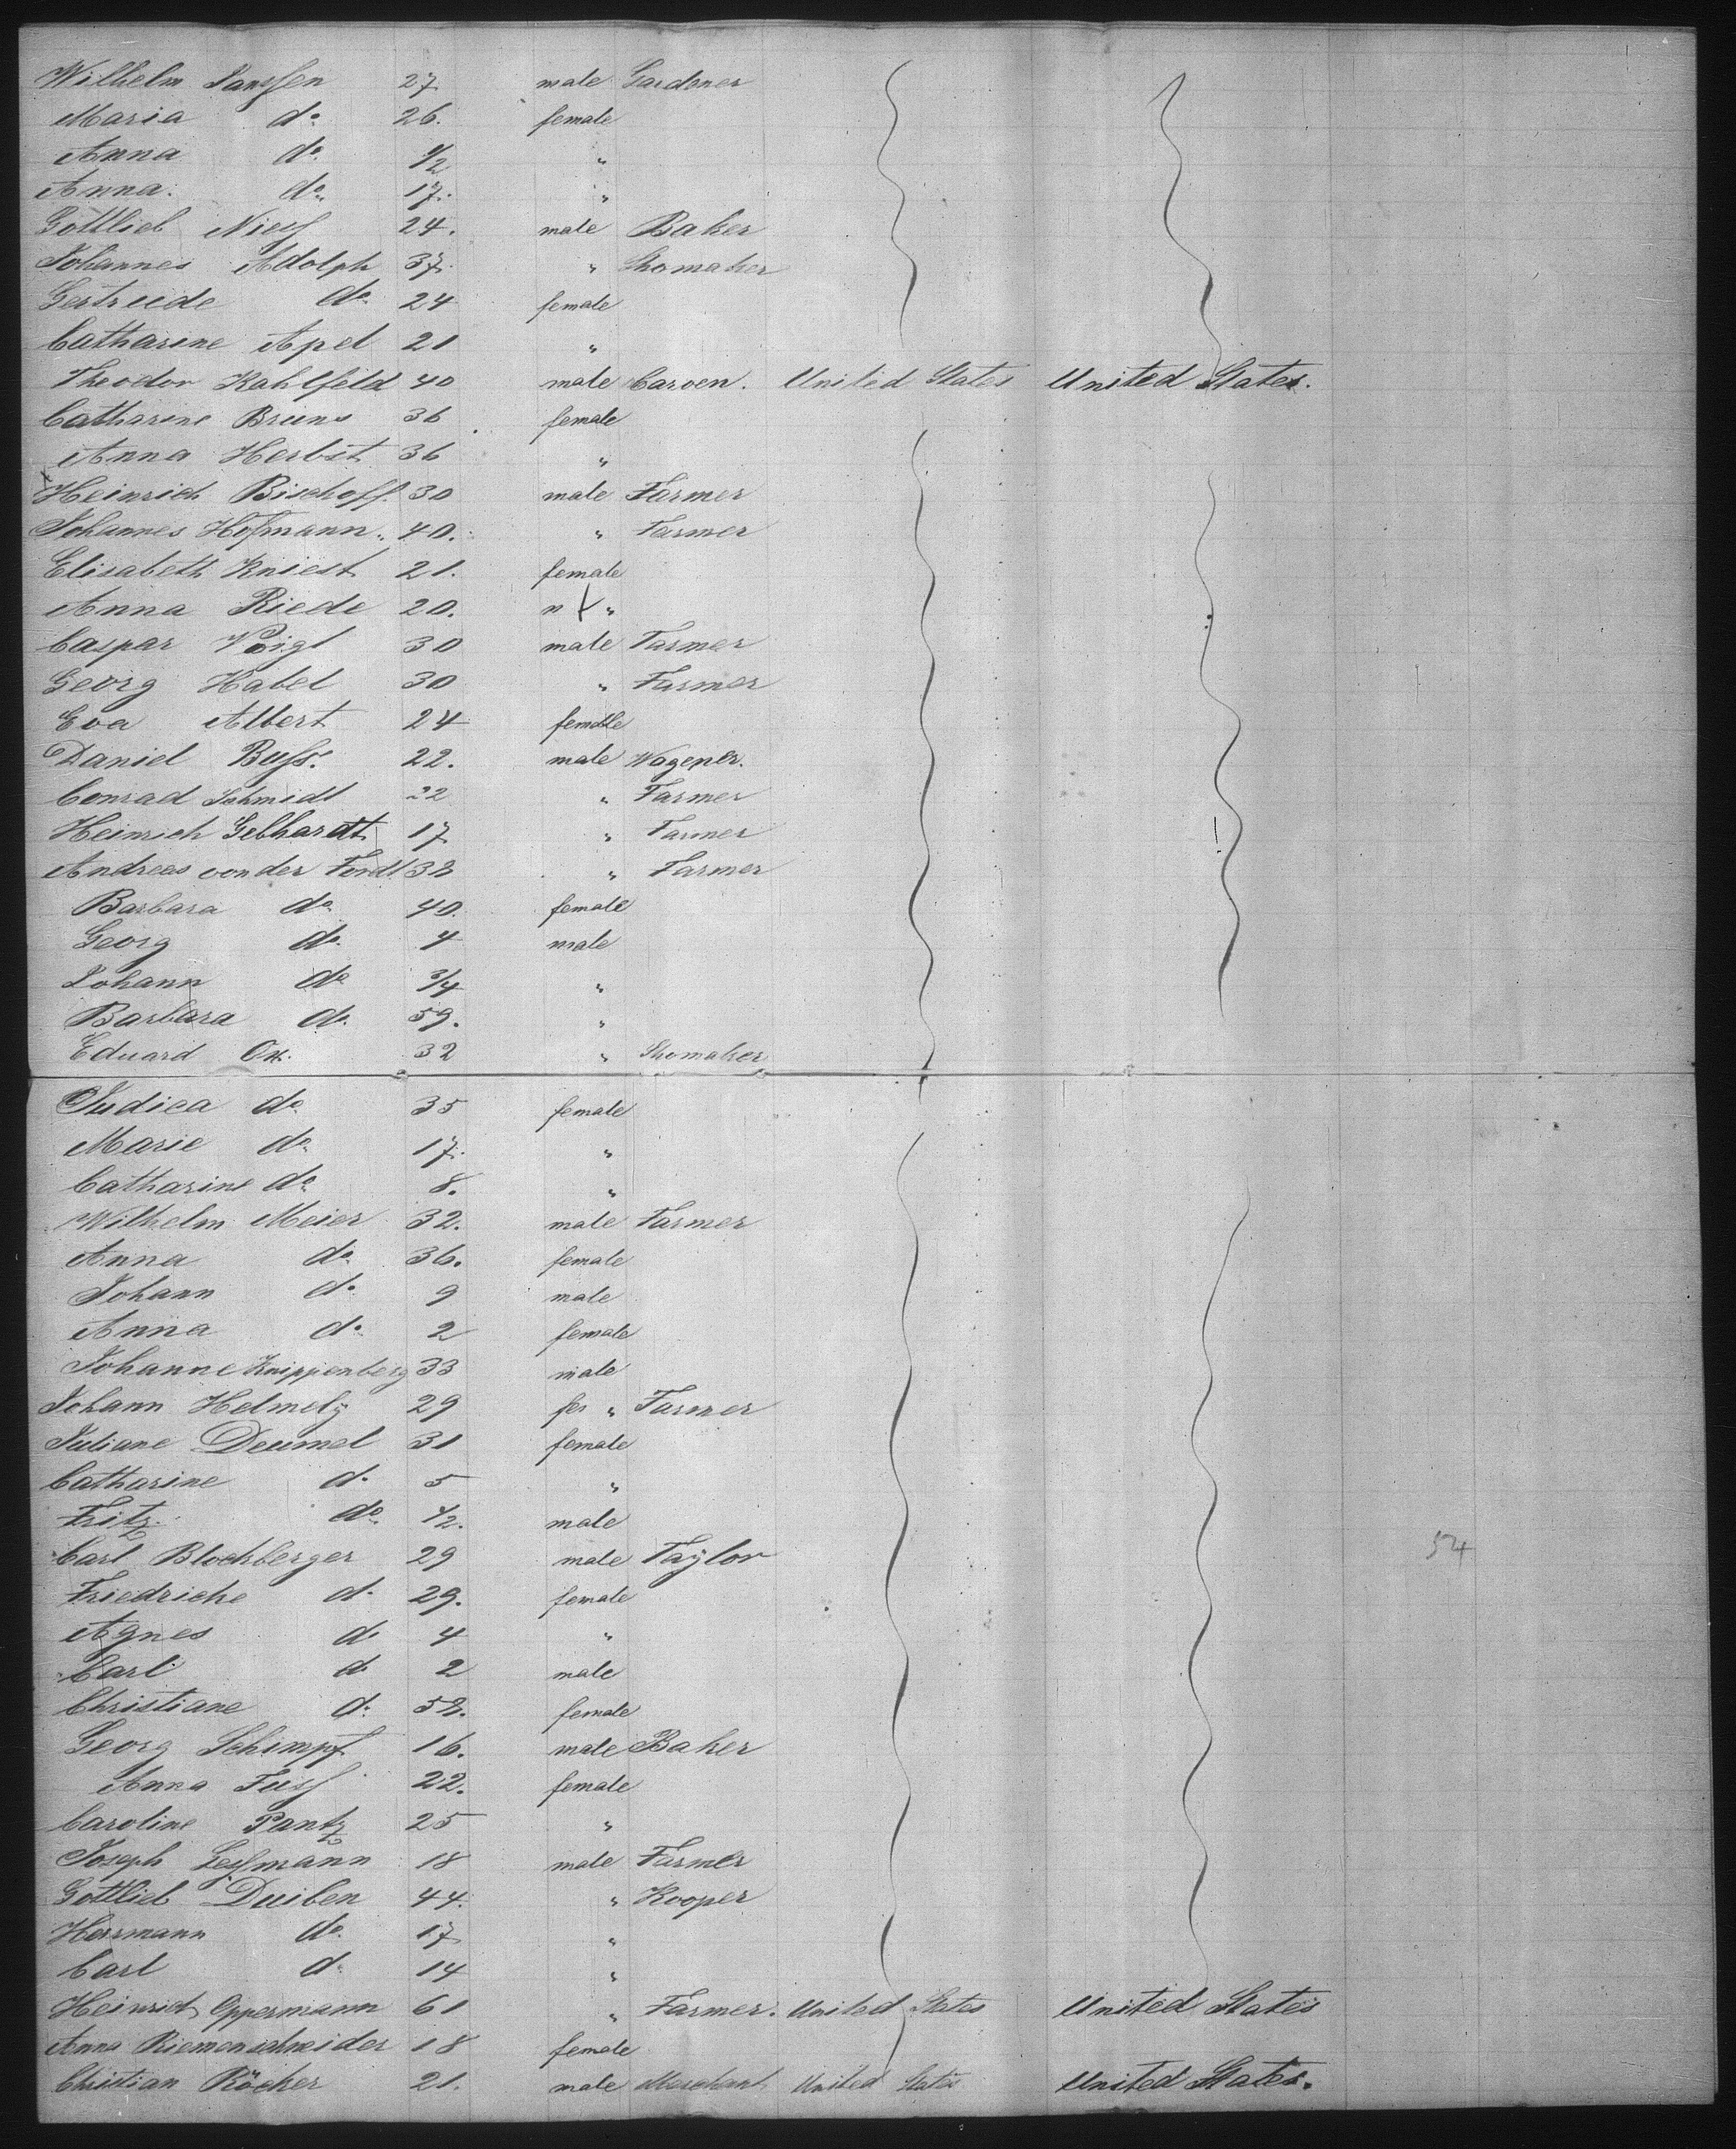 Wilhelm Janssen 27. male Gardener
Maria do 26. female
Anna do 1/2 "
Anna. do 17. "
Gottlieb Niess 24. male Baker
Johannes Adolph 37. " Shomaker
Gertrude do 24 female
Catharine Apel 21 "
Theodor Kahlfeld 40 male Carven. United States United States.
Catharine Bruns 36 female
Anna Herbst 36 "
Heinrich Bischoff. 30 male Farmer
Johannes Hofmann. 40. " Farmer
Elisabeth Kniest 21. female
Anna Riede 20. "
Caspar Voigt 30 male Farmer
Georg Habel 30 " Farmer
Eva Albert 24 female
Daniel Buss. 22. male Wagener.
Conrad Schmidt 22 " Farmer
Heinrich Gebhardt 17 " Farmer
Andreas von der 32 " Farmer
Barbara do 40. female
Georg do 4 male
Johann do 3/4 "
Barbara do. 59. "
Eduard Ox. 32 " Shomaker
Judica do 35 female
Marie do 17. "
Catharine do 8. "
Wilhelm Meier 32. male Farmer
Anna do 36. female
Johann do 9 male
Anna do 2 female
Johanne Knippenberg 33 male
Johann Helmely 29 fe " Farmer
Juliane Deumel 31 female
Catharine do 5 "
Fritz. do 1/2. male
Carl Blochberger 29 male Taylor
54
Friedriche do 29. female
Agnes do 4 "
Carl do 2 male
Christiane do 52. female
Georg Schimpf 16. male Baker
Anna Fuss 22. female
Caroline Pantz 25 "
Joseph Gessmann 18 male Farmer
Gottlieb Duiben 44. " Kooper
Herrmann do. 17 "
Carl do 14 "
Heinrich Oppermann 61 " Farmer. United States United States
Anna Riemenschneider 18 female
Christian Röcker 21. male Merchant United States United States.